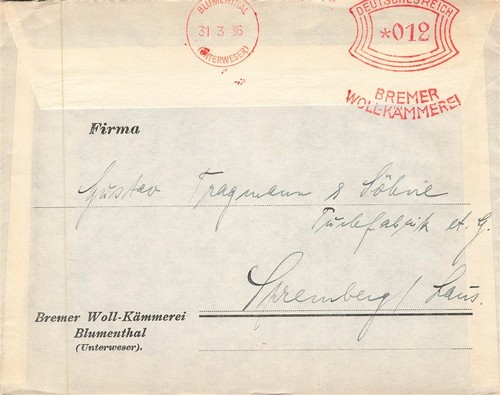 BLUMENTHAL
31 3 36
(UNTERWESER)
DEUTSCHES REICH
*012
BREMER
WOLL-KÄMMEREI
Firma
Gustav Tragmann & Söhne
Tuchfabrik
Spremberg / Laus.
Bremer Woll-Kämmerei
Blumenthal
(Unterweser).